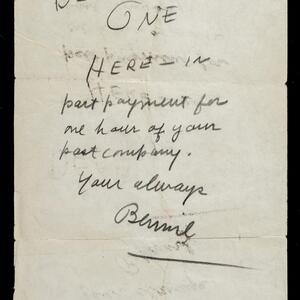 ONE
HERE - IN
part payment for
one hour of your
past company.
Your always
Bernie